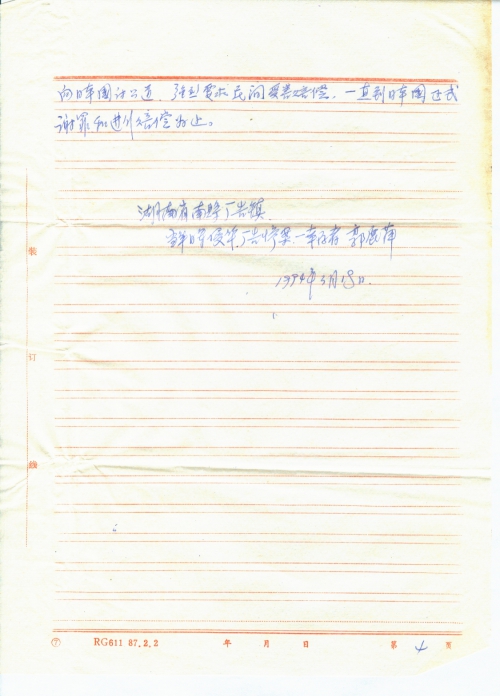 向日本国讨公道，强烈要求民间受害赔偿，一直到日本国正式
谢罪和进行赔偿为止。
湖南省南县厂窖镇
日军侵华厂窖惨案一幸存者 郭鹿萍
1994年3月18日.
装
订
线
⑦ RG611 87.2.2 年 月 日 第 4 页